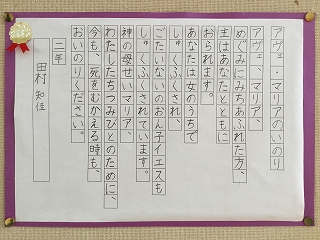 アヴェ・マリアのいのり
アヴェ、マリア、
めぐみにみちあふれた方、
主はあなたとともに
おられます。
あなたは女のうちで
しゅくふくされ、
ごたいないのおん子イエスも
しゅくふくされています。
神の母せいマリア、
わたしたちつみびとのために、
今も、死をむかえる時も、
おいのりください。
二年
田村 知佳